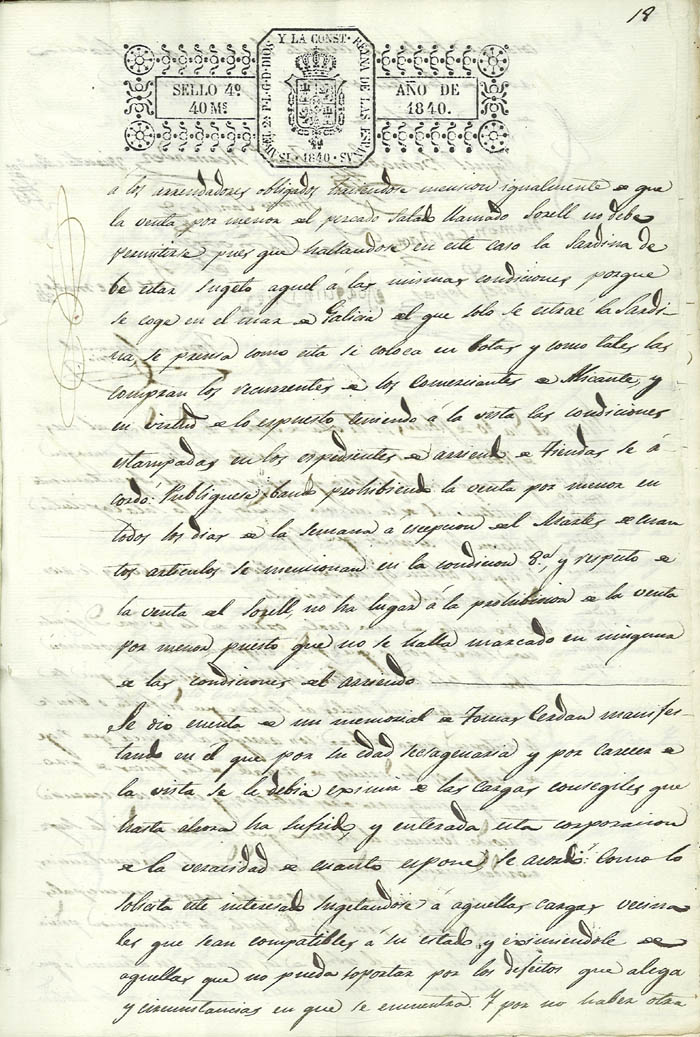 18
SELLO 4º
40 Mˢ
ISABEL 2ª P.L.G.D.DIOS Y LA CONST. REYNA DE LAS ESPAÑAS · 1840 ·
AÑO DE
1840.
á los arrendadores obligados haciendose mencion igualmente de que
la venta por menor del pescado salado llamado Sorell no debe
permitirse pues que hallandose en este caso la Sardina de
be estar sugeto aquel á las mismas condiciones porque
se coge en el mar de Galicia del que solo se estrae la Sardi-
na, se prensa como esta se coloca en botas y como tales las
compran los recurrentes de los Comerciantes de Alicante, y
en virtud de lo espuesto teniendo á la vista las condiciones
estampadas en los espedientes de arriendo de Tiendas se á
cordó: Publiquese bando prohibiendo la venta por menor en
todos los dias de la Semana a escepcion del Martes de cuan
tos articulos se mencionan en la condicion 8ª, y respeto de
la venta del Sorell, no ha lugar á la prohibicion de la venta
por menor puesto que no se halla marcado en ninguna
de las condiciones del arriendo
Se dió cuenta de un memorial de Tomas Cerdan manifes-
tando en él que por su edad secsagenaria y por carecer de
la vista se le debia eximir de las cargas consegiles que
hasta ahora ha sufrido, y enterada esta corporacion
de la veracidad de cuanto espone, se acordó: Como lo
solicita este interesado sugetandose á aquellas cargas vecina
les que sean compatibles á su estado y eximiendole de
aquellas que no pueda soportar por los defectos que alega
y circunstancias en que se encuentra. Y por no haber otra